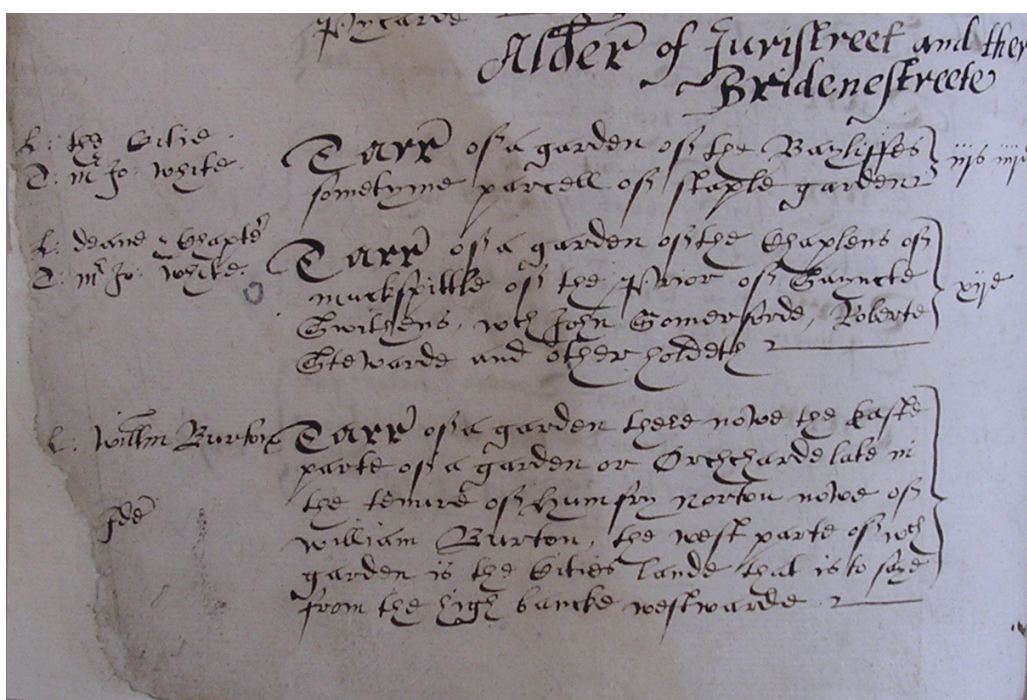 Alder of Juristreet and ther
Bridenestreete
L: the Citie
T: mr Jo: White
Tarr of a garden of the Bayliffes
sometyme parcell of staple garden
iijs iiijd
L: deane & Chapter
T: mr Jo: White
Tarr of a garden of the Chaplens of
of the Prior of Sayncte
Swithens, wch John Somerforde, Roberte
Stewarde and other holdeth
xijd
L: Willm Burton
Tarr of a garden there nowe the easte
parte of a garden or Orchcharde late in
the tenure of Humfry Norton nowe of
William Burton, the west parte of wch
garden is the Cities lande that is to saye
from the high bancke westwarde